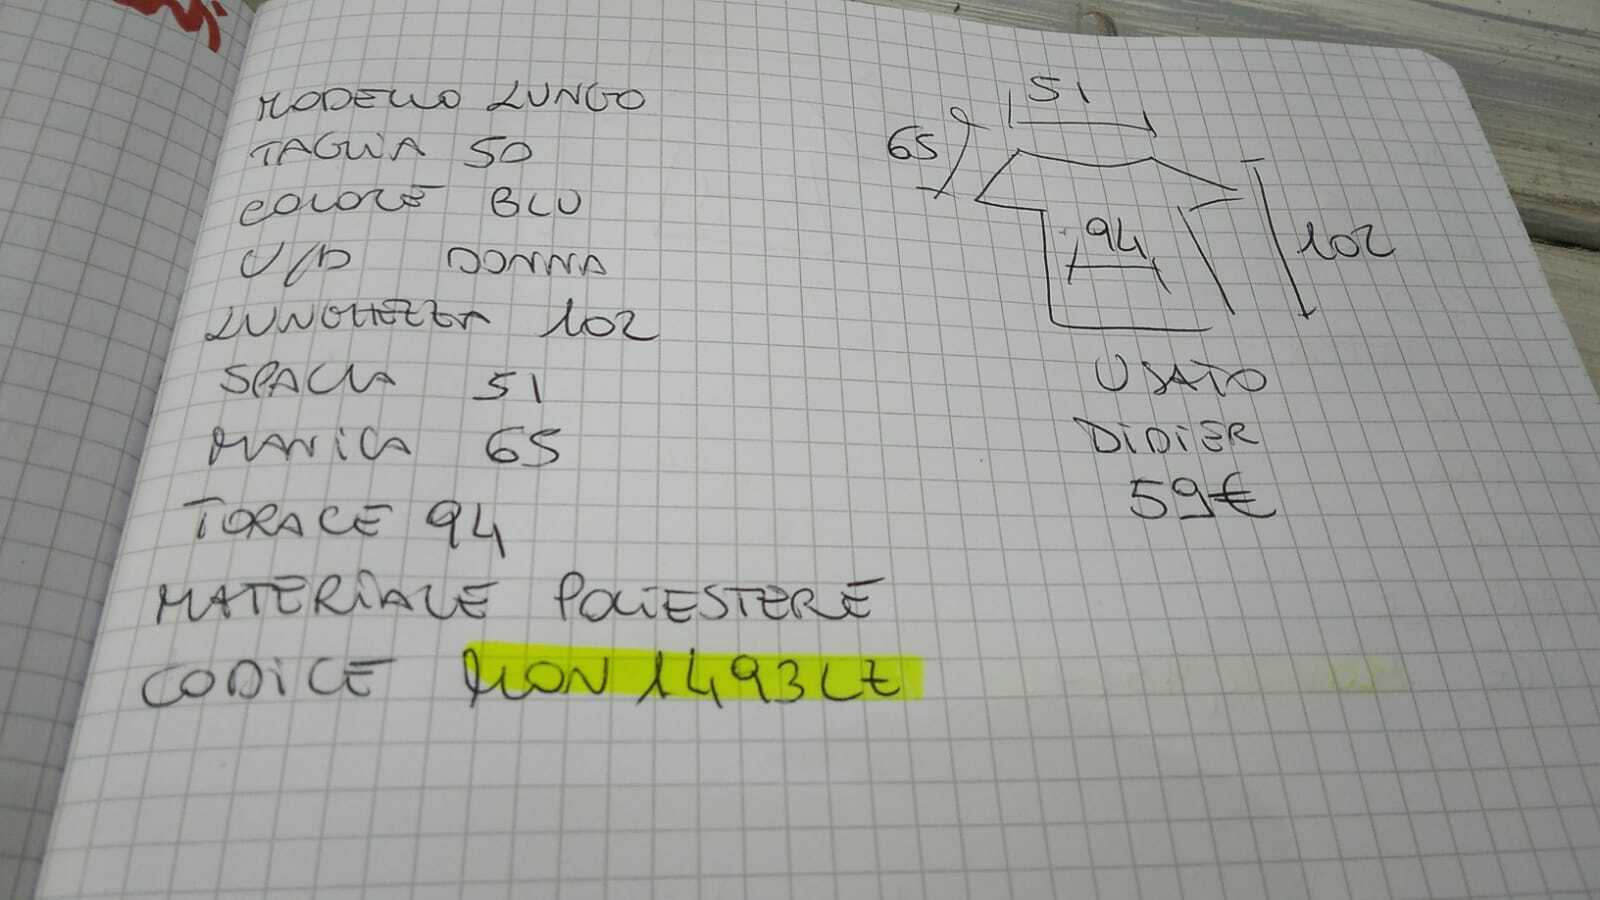 MODELLO LUNGO
TAGLIA 50
COLORE BLU
U/D DONNA
LUNGHEZZA 102
SPALLA 51
MANICA 65
TORACE 94
MATERIALE POLIESTERE
CODICE MON1493LZ
51
65
94
102
USATO
DIDIER
59€